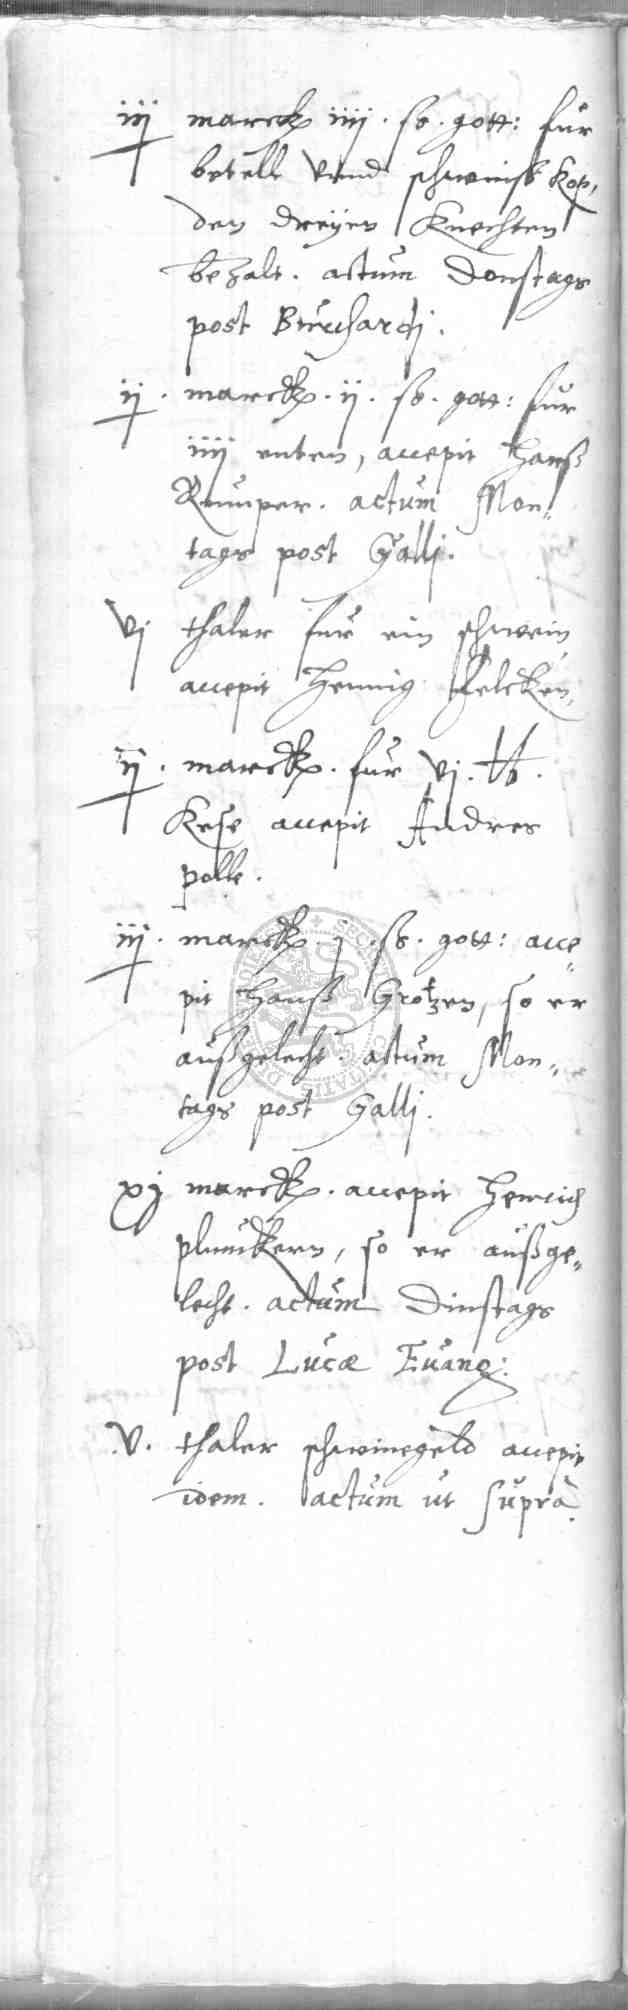 iij marck iiij. ss. gott: für
betell vnnd schweinß kop,
den dreyen Knechten
bezalt. actum Donstags
post Burchardj.
ij. marck. ij. ss. gott: für
iiij enten, accepit Hanß
Rumper. actum Mon„
tags post Gallj.
vj thaler für ein schwein
accepit Hennig Felcken,
ij. marck. für vj. lb.
Kese accepit Andres
polle.
iij. marck. j. ss. gott: acce„
pit Hanß Grotzen, so er
außgelecht. actum Mon„
tags post Gallj.
xj marck. accepit Henrich
plunckern, so er außge„
lecht. actum Dinstags
post Lucæ Euang:
v. thaler schweinegeld accepit
idem. actum ut supra.